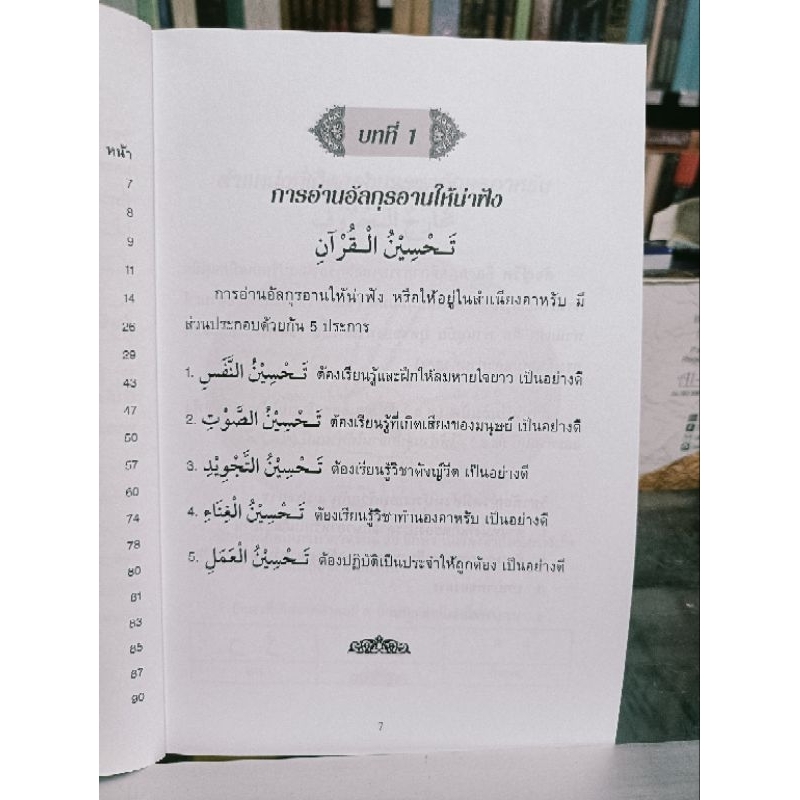 หน้า
7
8
9
11
14
26
29
43
47
50
57
60
74
78
80
81
83
85
87
90
บทที่ 1
การอ่านอัลกุรอานให้น่าฟัง
تَحْسِيْنُ الْقُرْآنِ
การอ่านอัลกุรอานให้น่าฟัง หรือให้อยู่ในสำเนียงคาหรับ มี
ส่วนประกอบด้วยกัน 5 ประการ
1. تَحْسِيْنُ النَّفَسِ ต้องเรียนรู้และฝึกให้ลมหายใจยาว เป็นอย่างดี
2. تَحْسِيْنُ الصَّوْتِ ต้องเรียนรู้ที่เกิดเสียงของมนุษย์ เป็นอย่างดี
3. تَحْسِيْنُ التَّجْوِيْدِ ต้องเรียนรู้วิชาตัจญ์วีด เป็นอย่างดี
4. تَحْسِيْنُ الْغِنَاءِ ต้องเรียนรู้วิชาทำนองคาหรับ เป็นอย่างดี
5. تَحْسِيْنُ الْعَمَلِ ต้องปฏิบัติเป็นประจำให้ถูกต้อง เป็นอย่างดี
7